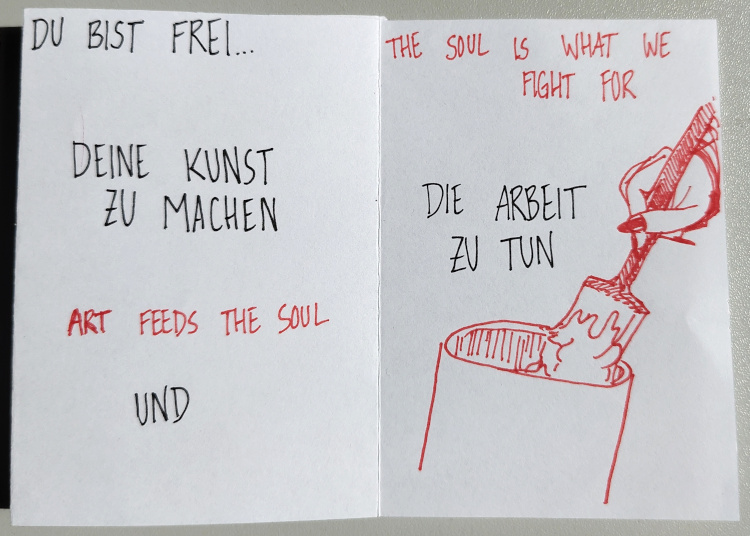 DU BIST FREI...
DEINE KUNST
ZU MACHEN
ART FEEDS THE SOUL
UND
THE SOUL IS WHAT WE
FIGHT FOR
DIE ARBEIT
ZU TUN